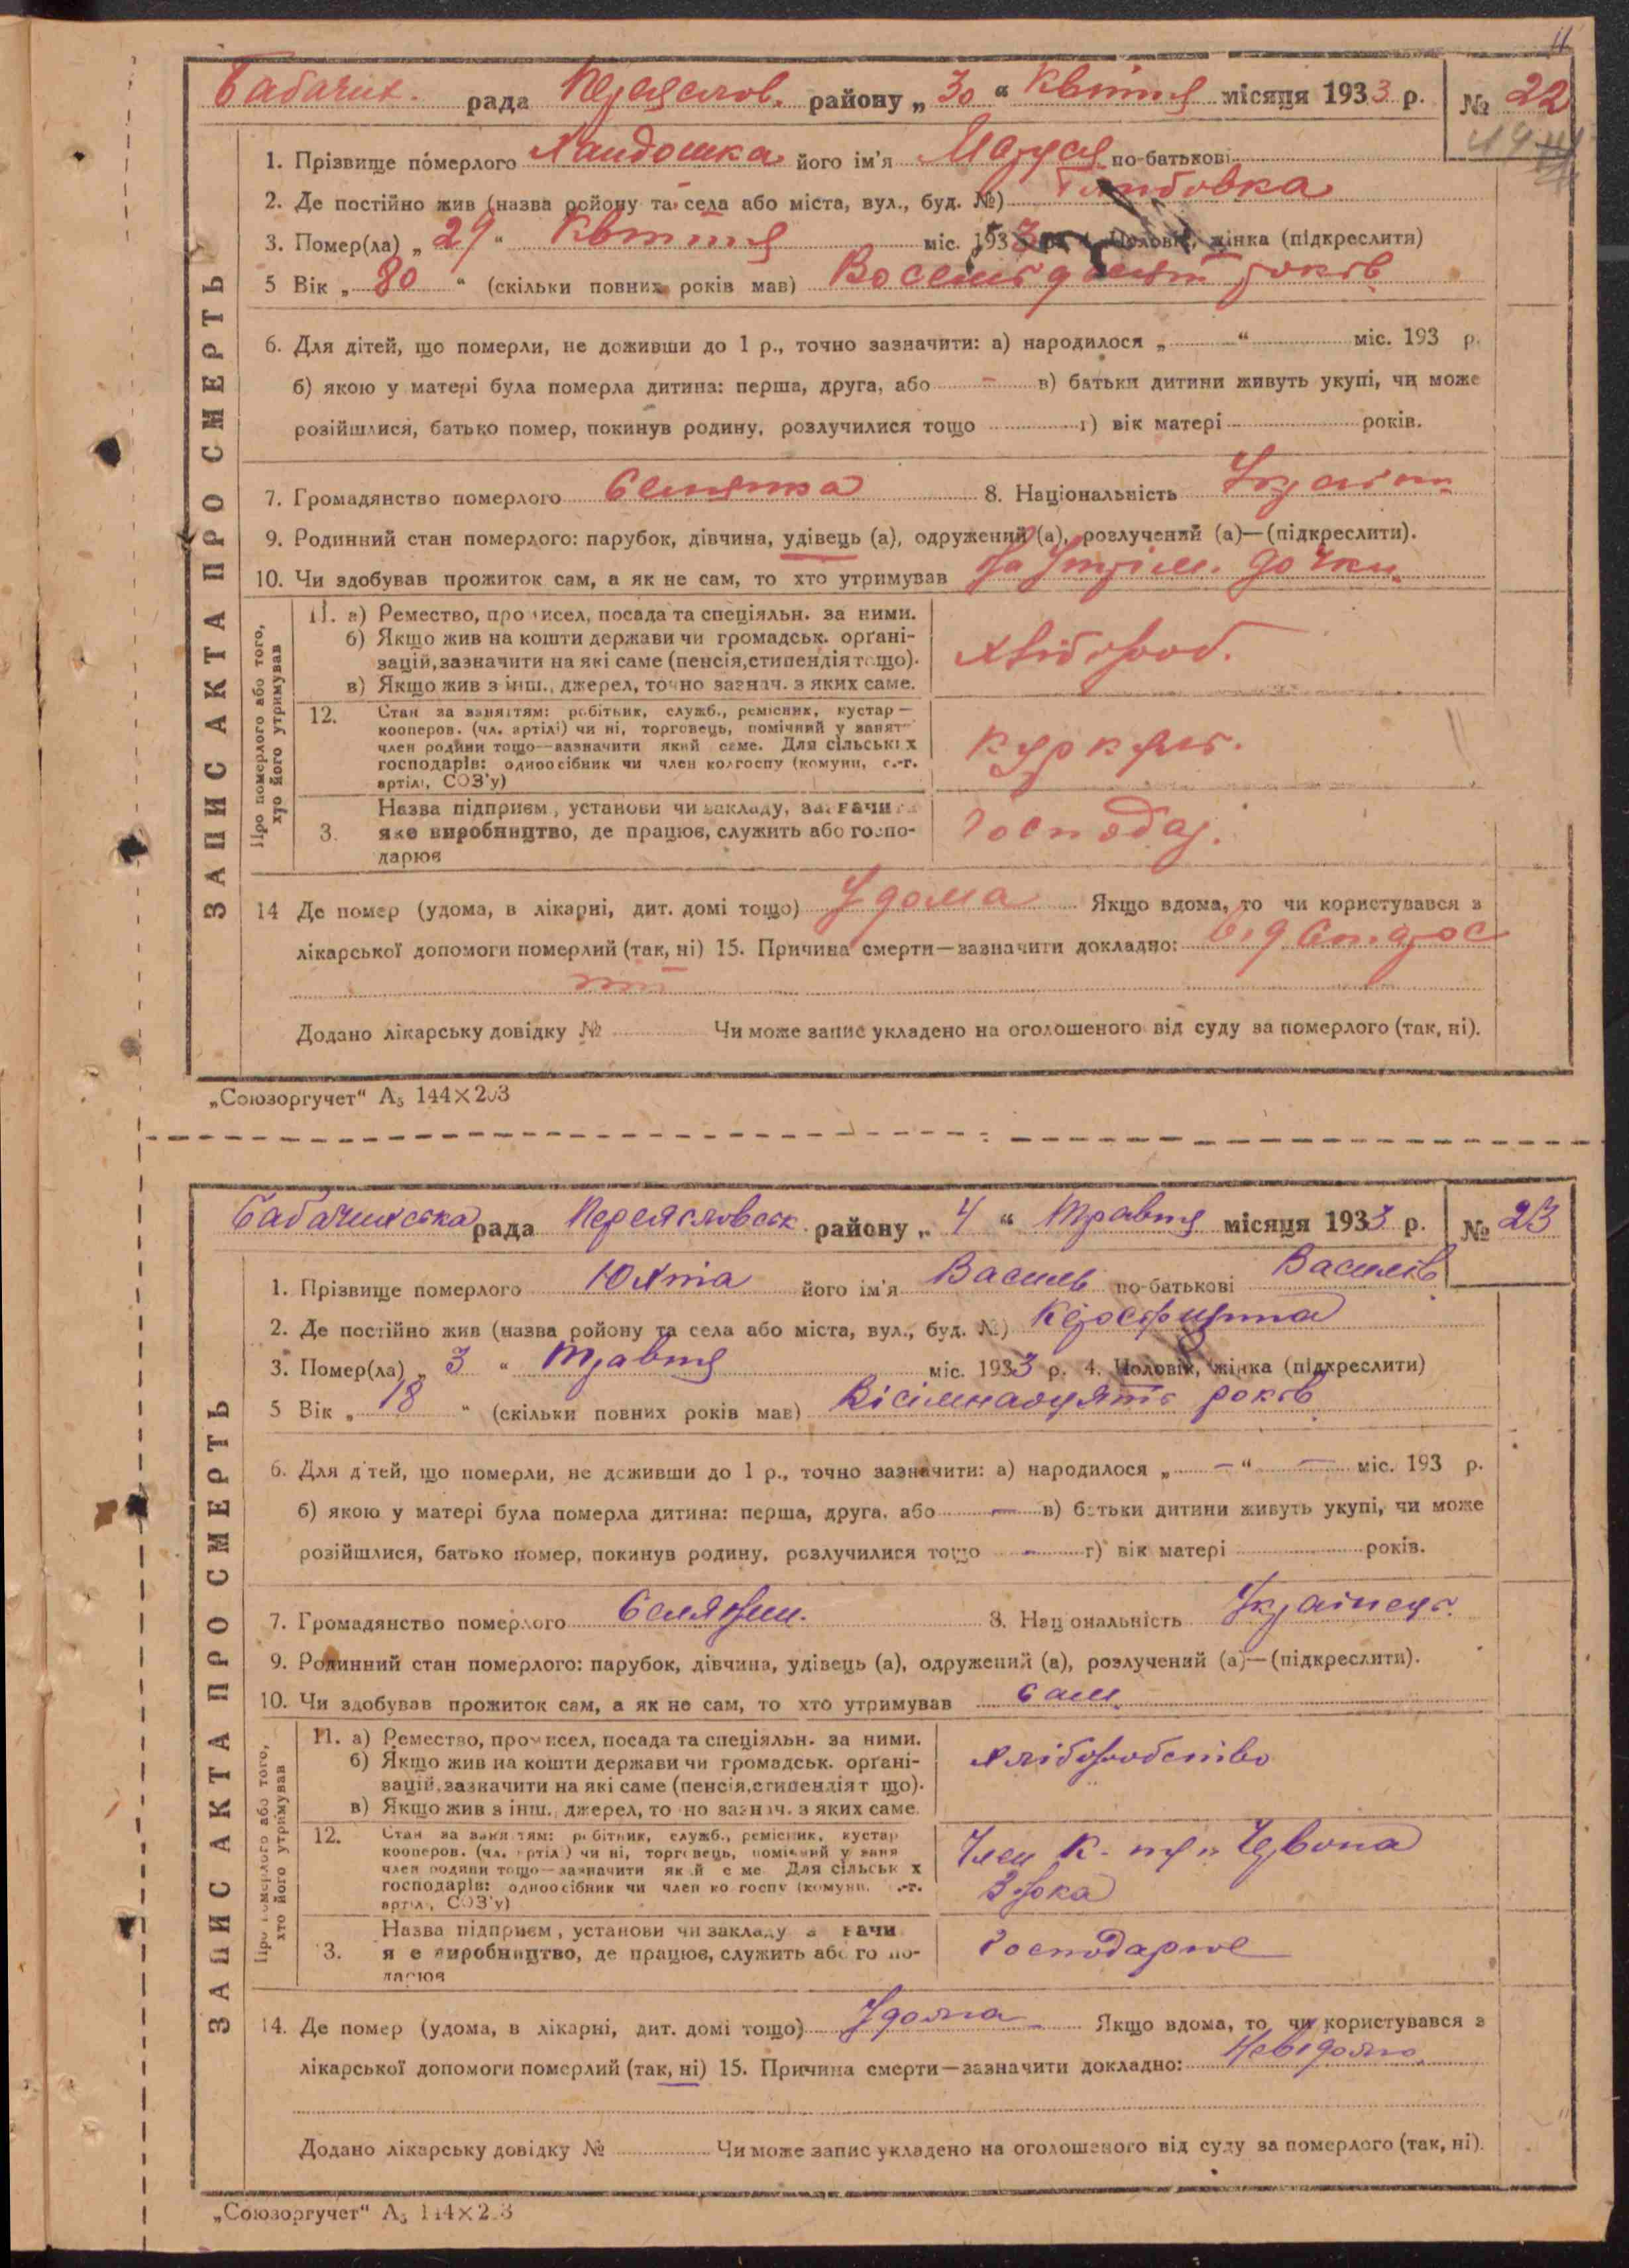 11
Бабачих. рада Переяслов. району „ 30 “ Квітня місяця 1933 р. № 22
1. Прізвище померлого Хандошка його ім'я Маруся по-батькові
2. Де постійно жив (назва ройону та села або міста, вул., буд. №)
3. Помер(ла) „ 29 “ Квітня міс. 1933 р. 4. Чоловік, жінка (підкреслити)
5 Вік „ 80 “ (скільки повних років мав) Восемьдесят років
6. Для дітей, що померли, не доживши до 1 р., точно зазначити: а) народилося „ “ міс. 193 р.
б) якою у матері була померла дитина: перша, друга, або – в) батьки дитини живуть укупі, чи може
розійшлися, батько помер, покинув родину, розлучилися тощо г) вік матері років.
7. Громадянство померлого Селянка 8. Національність Україн.
9. Родинний стан померлого: парубок, дівчина, удівець (а), одружений (а), розлучений (а)—(підкреслити).
10. Чи здобував прожиток сам, а як не сам, то хто утримував На Утрим. дочки
ЗАПИС АКТА ПРО СМЕРТЬ
Про померлого або того,
хто його утримував
11. а) Ремество, промисел, посада та спеціяльн. за ними.
б) Якщо жив на кошти держави чи громадськ. орґані-
зацій, зазначити на які саме (пенсія, стипендія тощо).
в) Якщо жив з інш., джерел, точно зазнач. з яких саме.
хлібороб.
12. Стан за заняттям: робітник, служб., ремісник, кустар —
кооперов. (чл. артілі) чи ні, торговець, помічний у занят
член родини тощо—зазначити який саме. Для сільських
господарів: одноосібник чи член колгоспу (комуни, с.-г.
артілі, СОЗ'у)
куркуль.
3. Назва підприєм, установи чи закладу, зазначити
яке виробництво, де працює, служить або госпо-
дарює
Господар.
14 Де помер (удома, в лікарні, дит. домі тощо) Удома Якщо вдома, то чи користувався з
лікарської допомоги померлий (так, ні) 15. Причина смерти—зазначити докладно: від старос
ті
Додано лікарську довідку № Чи може запис укладено на оголошеного від суду за померлого (так, ні).
„Союзоргучет“ А5 144×203
Бабачихська рада Переясловськ. району „ 4 “ Травня місяця 1933 р. № 23
1. Прізвище померлого Юхта його ім'я Василь по-батькові Василів
2. Де постійно жив (назва ройону та села або міста, вул., буд. №)
3. Помер(ла) „ 3 “ Травня міс. 1933 р. 4. Чоловік, жінка (підкреслити)
5 Вік „ 18 “ (скільки повних років мав) Вісімнадцять років
6. Для дітей, що померли, не доживши до 1 р., точно зазначити: а) народилося „ – “ – міс. 193 р.
б) якою у матері була померла дитина: перша, друга, або – в) батьки дитини живуть укупі, чи може
розійшлися, батько помер, покинув родину, розлучилися тощо – г) вік матері років.
7. Громадянство померлого Селянин. 8. Національність Українець.
9. Родинний стан померлого: парубок, дівчина, удівець (а), одружений (а), розлучений (а)—(підкреслити).
10. Чи здобував прожиток сам, а як не сам, то хто утримував сам
ЗАПИС АКТА ПРО СМЕРТЬ
Про померлого або того,
хто його утримував
11. а) Ремество, промисел, посада та спеціяльн. за ними.
б) Якщо жив на кошти держави чи громадськ. орґані-
зацій, зазначити на які саме (пенсія, стипендія т що).
в) Якщо жив з інш., джерел, точно зазнач. з яких саме.
хліборобство
12. Стан за заняттям: робітник, служб., ремісник, кустар
кооперов. (чл. артілі) чи ні, торговець, помічний у заня
член родини тощо—зазначити який саме Для сільськ х
господарів: одноосібник чи член колгоспу (комуни, с.-г.
артілі, СОЗ'у)
Член К. „Червона
Зірка
3. Назва підприєм, установи чи закладу зазначи
яке виробництво, де працює, служить або госпо-
дарює
Господарює
14. Де помер (удома, в лікарні, дит. домі тощо) Удома Якщо вдома, то чи користувався з
лікарської допомоги померлий (так, ні) 15. Причина смерти—зазначити докладно: Невідомо
Додано лікарську довідку № Чи може запис укладено на оголошеного від суду за померлого (так, ні).
„Союзоргучет“ А5 144×203